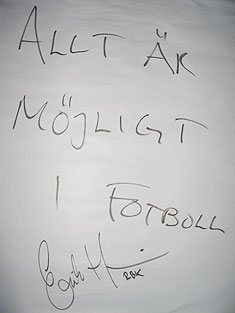 ALLT ÄR
MÖJLIGT
I FOTBOLL
RBK